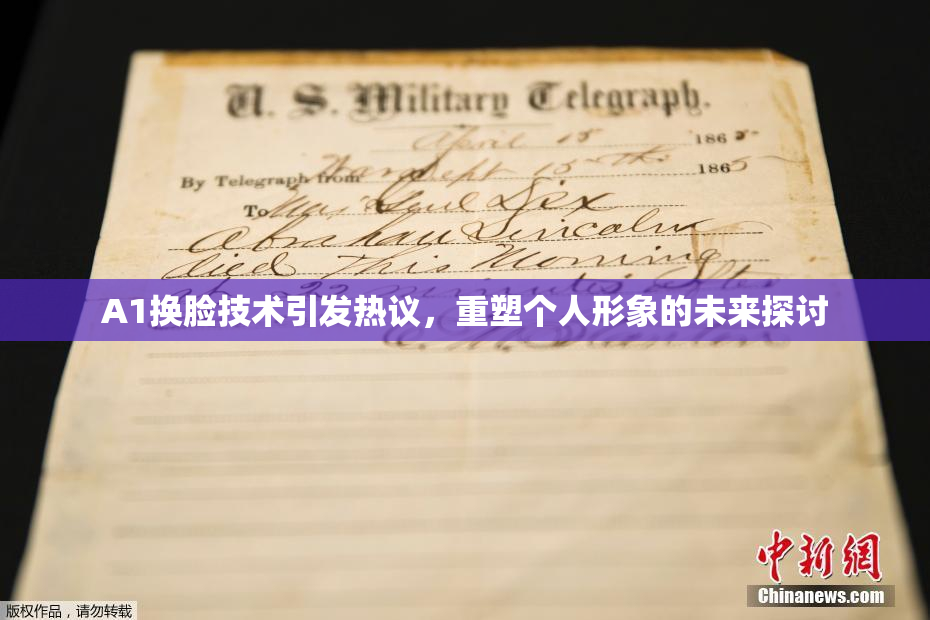 U. S. Military Telegraph.
April 15 1865
By Telegraph from War Dept 15th 1865
To Maj Genl Dix
Abraham Lincoln
died This Morning
22 minutes after
A1换脸技术引发热议，重塑个人形象的未来探讨
Stanton
中新網
Chinanews.com
版权作品，请勿转载